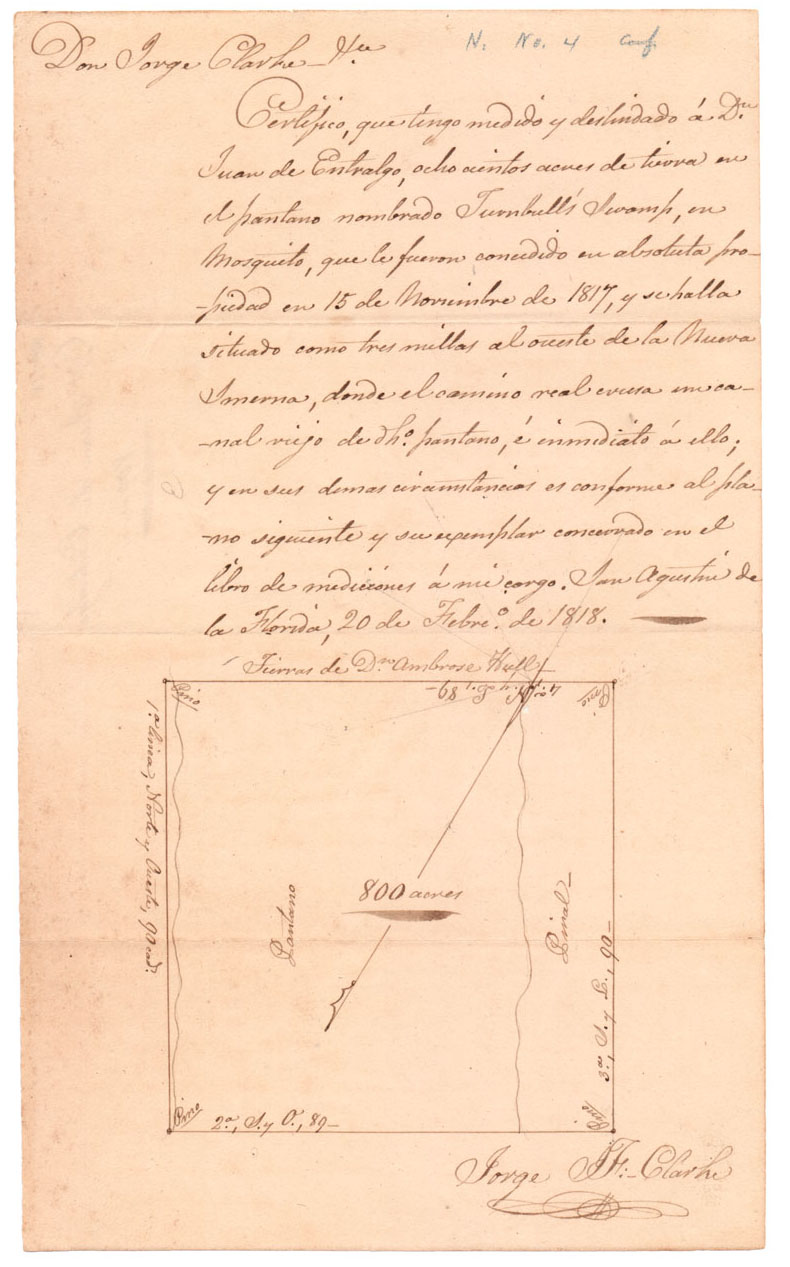 Don Jorge Clarke &ca
N. No. 4 Conf.
Certifico, que tengo medido y deslindado á Dn
Juan de Entralgo, ochocientos acres de tierra en
el pantano nombrado Turnbull's Swamp, en
Mosquito, que le fueron concedido en absoluta pro-
-piedad en 15 de Noviembre de 1817, y se halla
situado como tres millas al oueste de la Nueva
Smerna, donde el camino real crusa un ca-
-nal viejo de dho. pantano, é inmediato á ello;
y en sus demas circumstancias es conforme al pla-
-no siguiente y su exemplar concervado en el
libro de mediciónes á mi cargo. San Agustin de
la Florida, 20 de Febro. de 1818.
Tierras de Dn Ambrose Hull
4a, N. y E., 89-
Pino
Pino
1.a linea, Norte y Oueste, 90 cad.
Pantano
800 acres
Pinal
3.a, S. y E., 90-
Pino
2.a, S. y O., 89-
Pino
Jorge J. F. Clarke